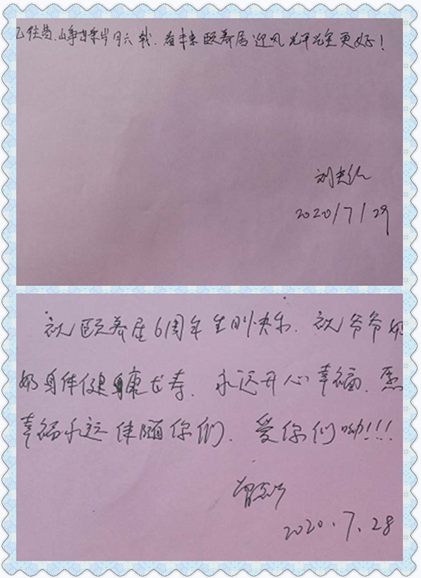 往昔.峥嵘岁月六载.看未来颐养居迎风更好！
刘
2020/7/29
祝颐养居6周年生日快乐.祝爷爷奶
奶身体健康长寿.永远开心幸福.愿
幸福永远伴随你们.爱你们呦!!!
2020.7.28